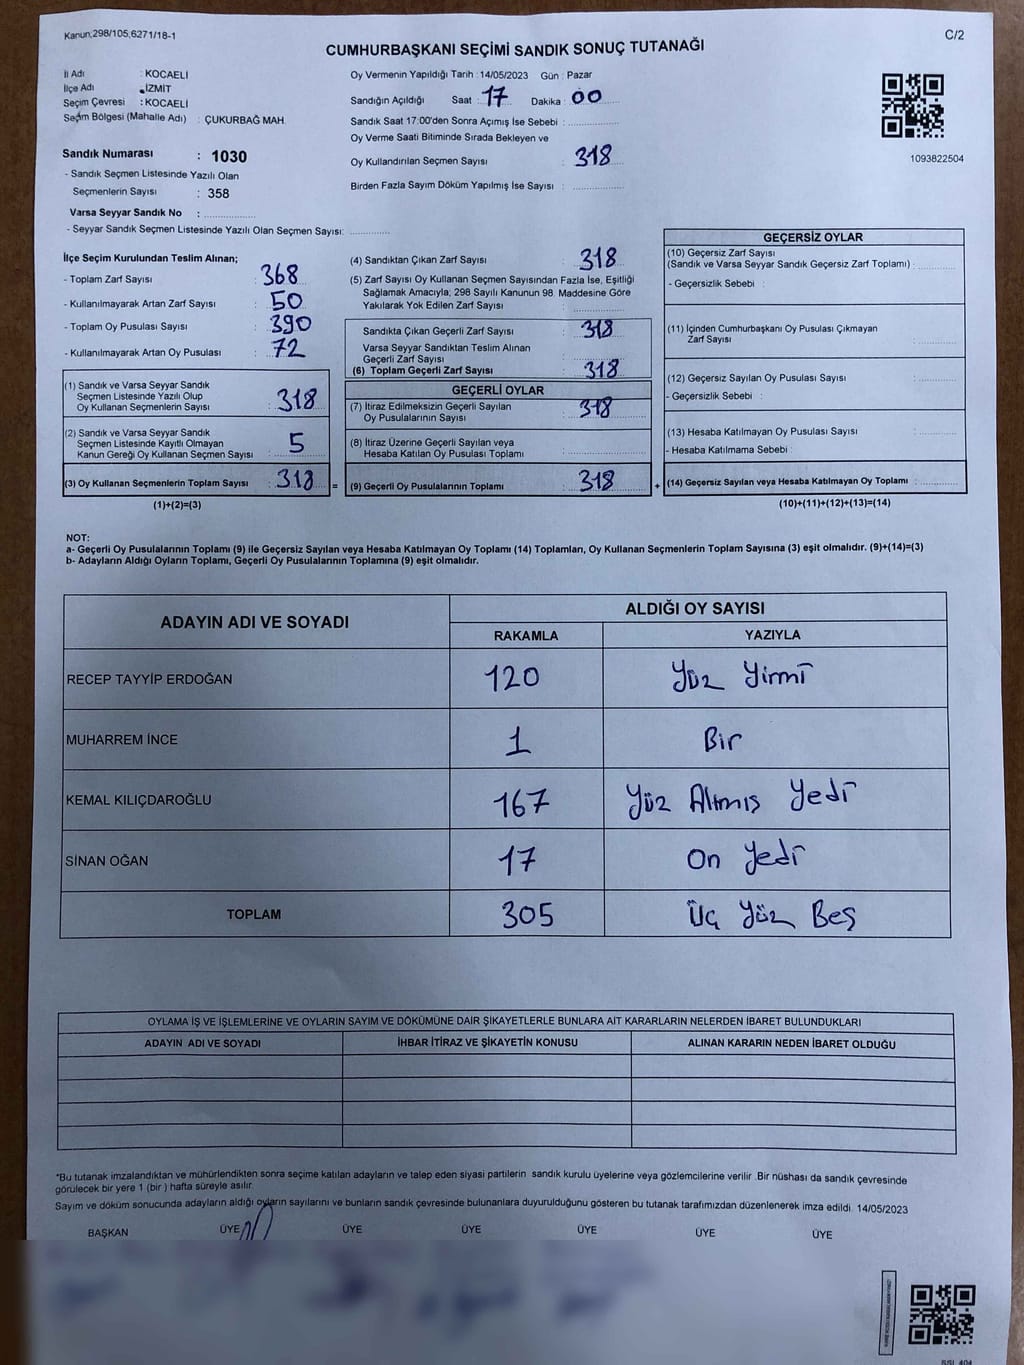 Kanun;298/105,6271/18-1
C/2
CUMHURBAŞKANI SEÇİMİ SANDIK SONUÇ TUTANAĞI
İl Adı : KOCAELİ
İlçe Adı : İZMİT
Seçim Çevresi : KOCAELİ
Seçim Bölgesi (Mahalle Adı) : ÇUKURBAĞ MAH.
Sandık Numarası : 1030
- Sandık Seçmen Listesinde Yazılı Olan
Seçmenlerin Sayısı : 358
Varsa Seyyar Sandık No :
- Seyyar Sandık Seçmen Listesinde Yazılı Olan Seçmen Sayısı:
Oy Vermenin Yapıldığı Tarih : 14/05/2023 Gün : Pazar
Sandığın Açıldığı Saat : 17 Dakika : 00
Sandık Saat 17:00'den Sonra Açımış İse Sebebi :
Oy Verme Saati Bitiminde Sırada Bekleyen ve
Oy Kullandırılan Seçmen Sayısı : 318
Birden Fazla Sayım Döküm Yapılmış İse Sayısı :
1093822504
İlçe Seçim Kurulundan Teslim Alınan;
- Toplam Zarf Sayısı : 368
- Kullanılmayarak Artan Zarf Sayısı : 50
- Toplam Oy Pusulası Sayısı : 390
- Kullanılmayarak Artan Oy Pusulası : 72
(1) Sandık ve Varsa Seyyar Sandık
Seçmen Listesinde Yazılı Olup
Oy Kullanan Seçmenlerin Sayısı : 318
(2) Sandık ve Varsa Seyyar Sandık
Seçmen Listesinde Kayıtlı Olmayan
Kanun Gereği Oy Kullanan Seçmen Sayısı : 5
(3) Oy Kullanan Seçmenlerin Toplam Sayısı : 318 =
(1)+(2)=(3)
(4) Sandıktan Çıkan Zarf Sayısı : 318
(5) Zarf Sayısı Oy Kullanan Seçmen Sayısından Fazla İse, Eşitliği
Sağlamak Amacıyla, 298 Sayılı Kanunun 98. Maddesine Göre
Yakılarak Yok Edilen Zarf Sayısı :
Sandıkta Çıkan Geçerli Zarf Sayısı : 318
Varsa Seyyar Sandıktan Teslim Alınan
Geçerli Zarf Sayısı :
(6) Toplam Geçerli Zarf Sayısı : 318
GEÇERLİ OYLAR
(7) İtiraz Edilmeksizin Geçerli Sayılan
Oy Pusulalarının Sayısı : 318
(8) İtiraz Üzerine Geçerli Sayılan veya
Hesaba Katılan Oy Pusulası Toplamı :
(9) Geçerli Oy Pusulalarının Toplamı : 318 +
GEÇERSİZ OYLAR
(10) Geçersiz Zarf Sayısı
(Sandık ve Varsa Seyyar Sandık Geçersiz Zarf Toplamı) :
- Geçersizlik Sebebi :
(11) İçinden Cumhurbaşkanı Oy Pusulası Çıkmayan
Zarf Sayısı :
(12) Geçersiz Sayılan Oy Pusulası Sayısı :
- Geçersizlik Sebebi :
(13) Hesaba Katılmayan Oy Pusulası Sayısı :
- Hesaba Katılmama Sebebi :
(14) Geçersiz Sayılan veya Hesaba Katılmayan Oy Toplamı :
(10)+(11)+(12)+(13)=(14)
NOT:
a- Geçerli Oy Pusulalarının Toplamı (9) ile Geçersiz Sayılan veya Hesaba Katılmayan Oy Toplamı (14) Toplamları, Oy Kullanan Seçmenlerin Toplam Sayısına (3) eşit olmalıdır. (9)+(14)=(3)
b- Adayların Aldığı Oyların Toplamı, Geçerli Oy Pusulalarının Toplamına (9) eşit olmalıdır.
ADAYIN ADI VE SOYADI
ALDIĞI OY SAYISI
RAKAMLA YAZIYLA
RECEP TAYYİP ERDOĞAN 120 Yüz Yirmi
MUHARREM İNCE 1 Bir
KEMAL KILIÇDAROĞLU 167 Yüz Altmış Yedi
SİNAN OĞAN 17 On Yedi
TOPLAM 305 Üç Yüz Beş
OYLAMA İŞ VE İŞLEMLERİNE VE OYLARIN SAYIM VE DÖKÜMÜNE DAİR ŞİKAYETLERLE BUNLARA AİT KARARLARIN NELERDEN İBARET BULUNDUKLARI
ADAYIN ADI VE SOYADI İHBAR İTİRAZ VE ŞİKAYETİN KONUSU ALINAN KARARIN NEDEN İBARET OLDUĞU
*Bu tutanak imzalandıktan ve mühürlendikten sonra seçime katılan adayların ve talep eden siyasi partilerin sandık kurulu üyelerine veya gözlemcilerine verilir .Bir nüshası da sandık çevresinde
görülecek bir yere 1 (bir ) hafta süreyle asılır.
Sayım ve döküm sonucunda adayların aldığı oyların sayılarını ve bunların sandık çevresinde bulunanlara duyurulduğunu gösteren bu tutanak tarafımızdan düzenlenerek imza edildi. 14/05/2023
BAŞKAN ÜYE ÜYE ÜYE ÜYE ÜYE ÜYE